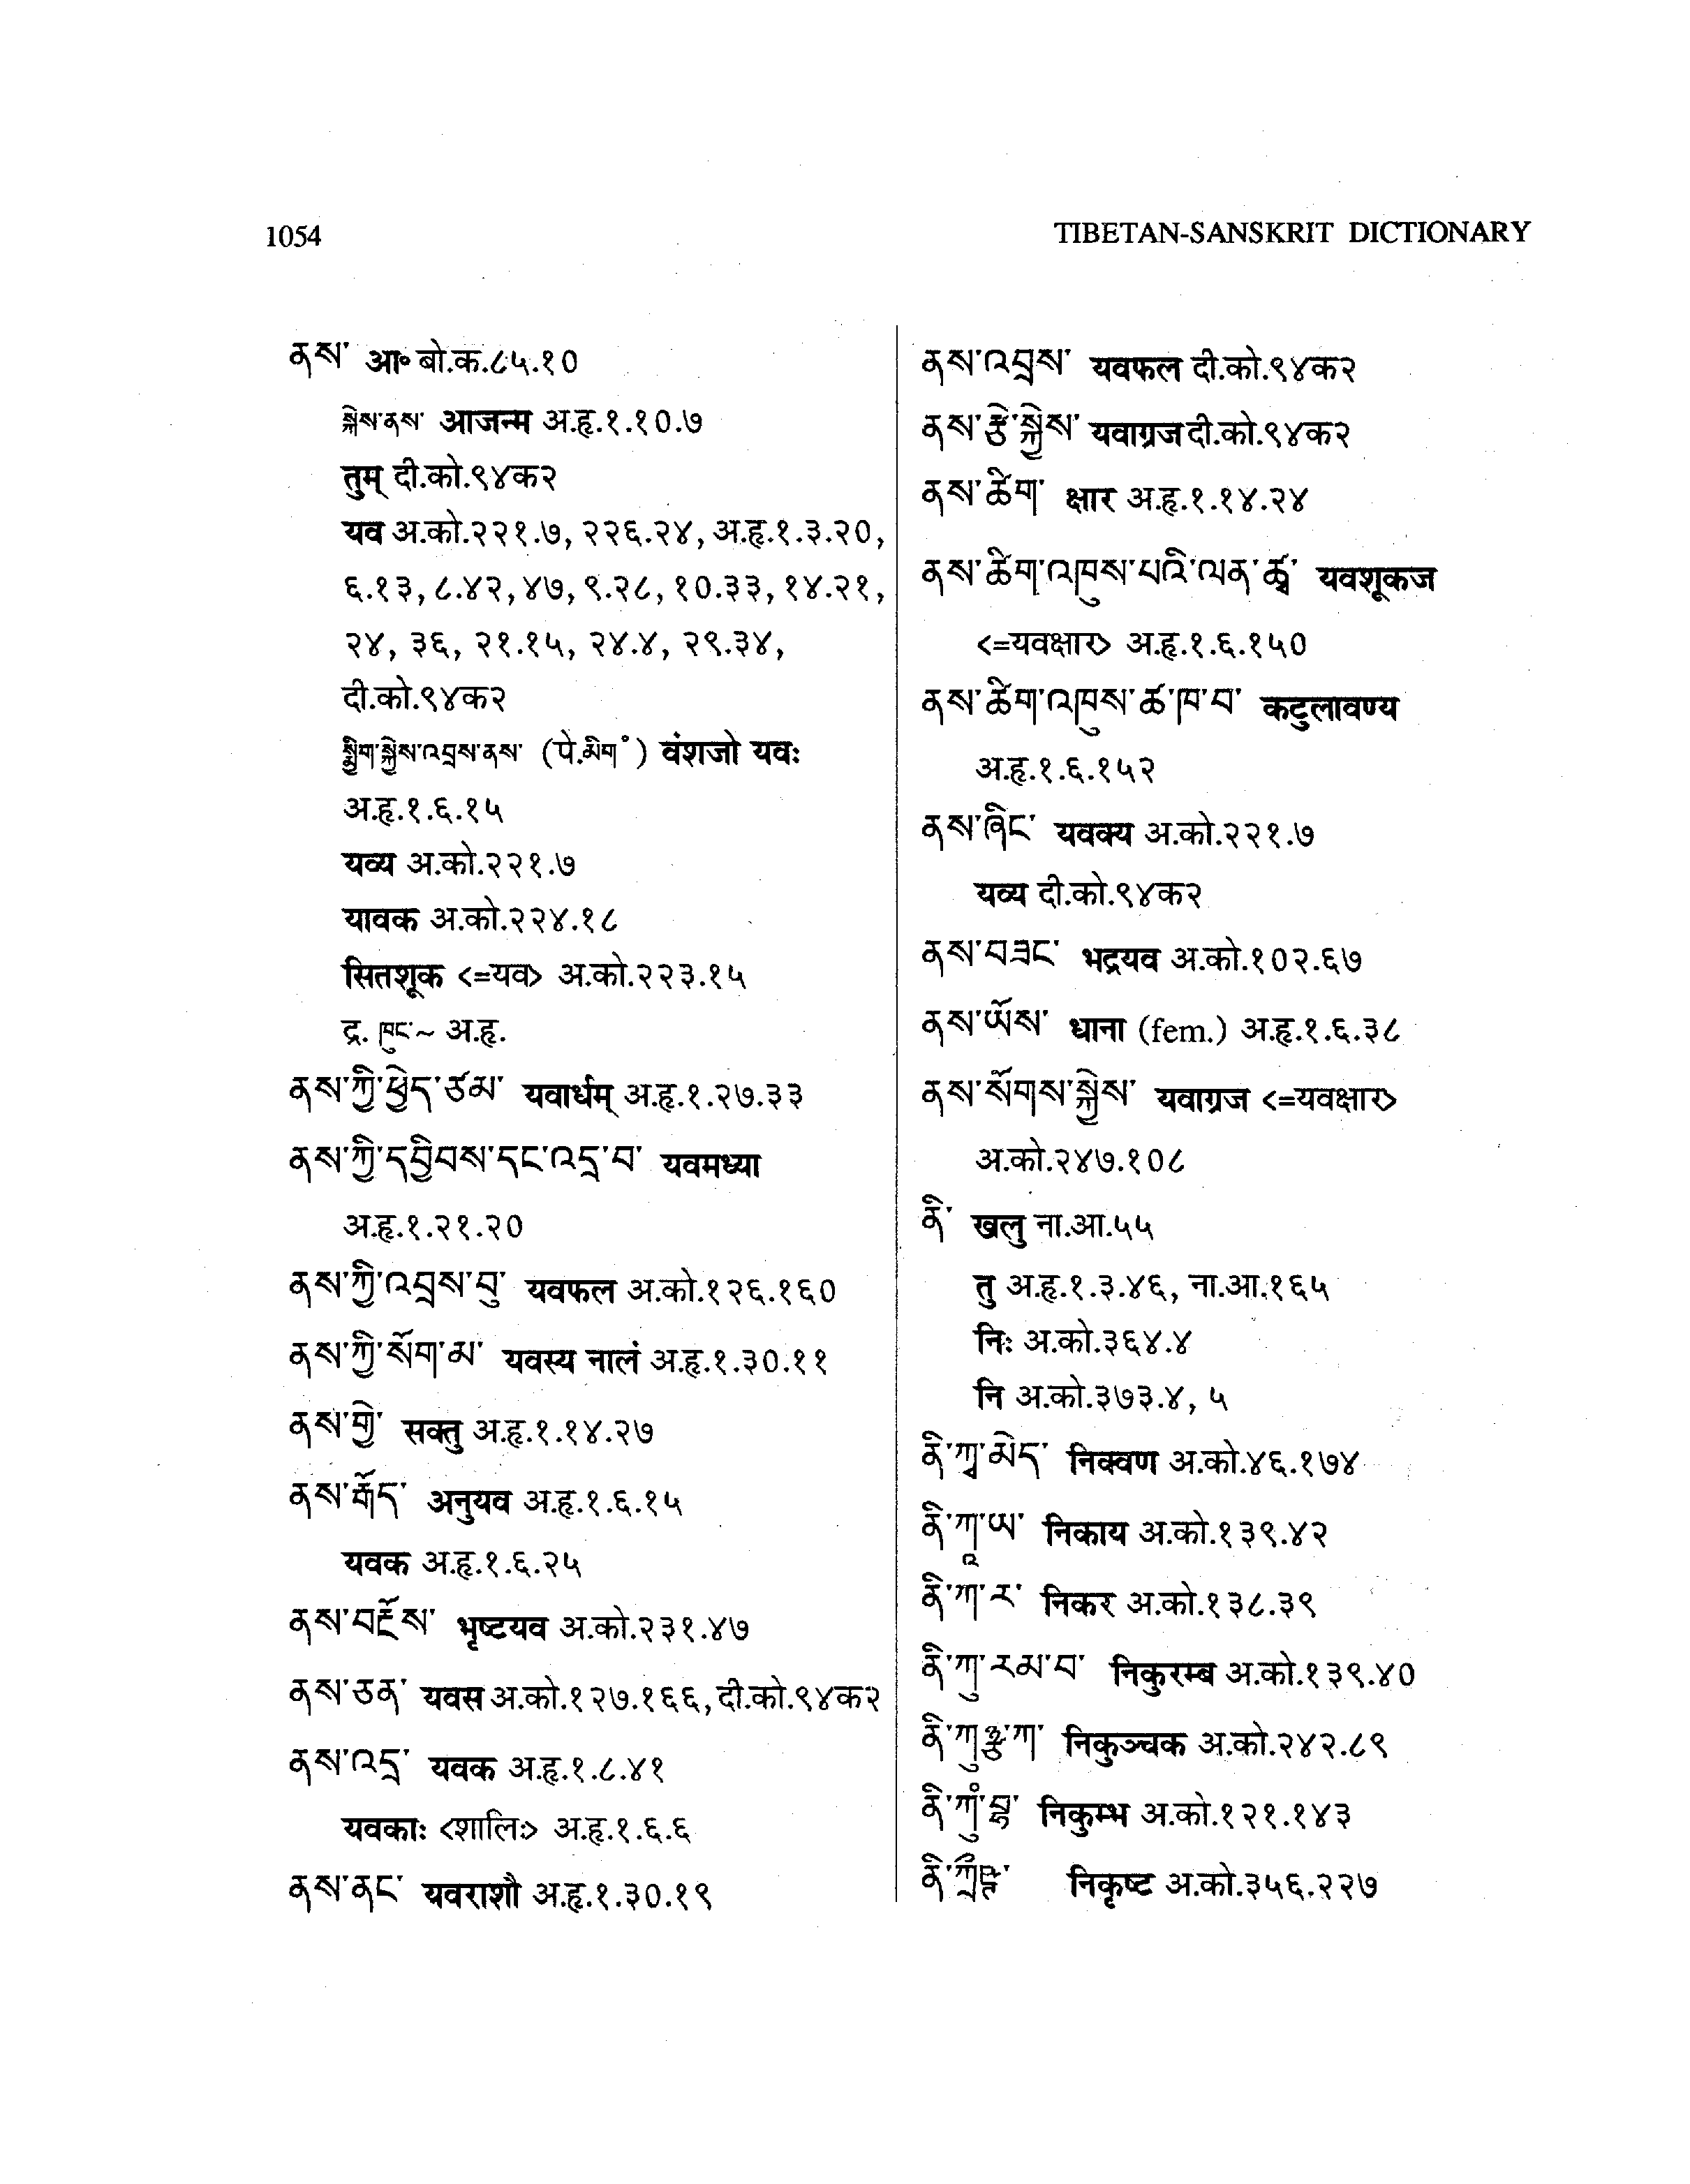 1054
TIBETAN-SANSKRIT DICTIONARY
ནས་ आ॰ बो.क.८५.१०
སྐྱེས་ནས་ आजन्म अ.हृ.१.१०.७
तुम् दी.को.९४क२
यव अ.को.२२१.७, २२६.२४, अ.हृ.१.३.२०,
६.१३, ८.४२, ४७, ९.२८, १०.३३, १४.२१,
२४, ३६, २१.१५, २४.४, २९.३४,
दी.को.९४क२
སྨྱིག་སྐྱེས་འབྲས་ནས་ (पे.མིག॰) वंशजो यवः
अ.हृ.१.६.१५
यव्य अ.को.२२१.७
यावक अ.को.२२४.१८
सितशूक <=यव> अ.को.२२३.१५
द्र. ཁུང་~ अ.हृ.
ནས་ཀྱི་ཕྱེད་ཙམ་ यवार्धम् अ.हृ.१.२७.३३
ནས་ཀྱི་དབྱིབས་དང་འདྲ་བ་ यवमध्या
अ.हृ.१.२१.२०
ནས་ཀྱི་འབྲས་བུ་ यवफल अ.को.१२६.१६०
ནས་ཀྱི་སོག་མ་ यवस्य नालं अ.हृ.१.३०.११
ནས་གྱི་ सक्तु अ.हृ.१.१४.२७
ནས་རྒོད་ अनुयव अ.हृ.१.६.१५
यवक अ.हृ.१.६.२५
ནས་བརྔོས་ भृष्टयव अ.को.२३१.४७
ནས་ཅན་ यवस अ.को.१२७.१६६, दी.को.९४क२
ནས་འདྲ་ यवक अ.हृ.१.८.४१
यवकाः <शालिः> अ.हृ.१.६.६
ནས་ནང་ यवराशौ अ.हृ.१.३०.१९
ནས་འབྲས་ यवफल दी.को.९४क२
ནས་རྩེ་སྐྱེས་ यवाग्रज दी.को.९४क२
ནས་ཚིག་ क्षार अ.हृ.१.१४.२४
ནས་ཚིག་འཁུས་པའི་ལན་ཚྭ་ यवशूकज
<=यवक्षार> अ.हृ.१.६.१५०
ནས་ཚིག་འཁུས་ཚ་ཁ་བ་ कटुलावण्य
अ.हृ.१.६.१५२
ནས་ཞིང་ यवक्य अ.को.२२१.७
यव्य दी.को.९४क२
ནས་བཟང་ भद्रयव अ.को.१०२.६७
ནས་ཡོས་ धाना (fem.) अ.हृ.१.६.३८
ནས་སོགས་སྐྱེས་ यवाग्रज <=यवक्षार>
अ.को.२४७.१०८
ནི་ खलु ना.आ.५५
तु अ.हृ.१.३.४६, ना.आ.१६५
निः अ.को.३६४.४
नि अ.को.३७३.४, ५
ནི་ཀྭ་མེད་ निक्वण अ.को.४६.१७४
ནི་ཀཱ་ཡ་ निकाय अ.को.१३९.४२
ནི་ཀ་ར་ निकर अ.को.१३८.३९
ནི་ཀུ་རམ་བ་ निकुरम्ब अ.को.१३९.४०
ནི་ཀུཉྩ་ཀ་ निकुञ्चक अ.को.२४२.८९
ནི་ཀུཾ་བྷ་ निकुम्भ अ.को.१२१.१४३
ནི་ཀྲྀཥྚ་ निकृष्ट अ.को.३५६.२२७